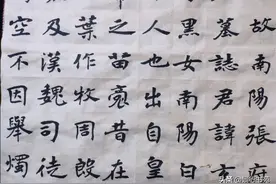 故南陽張府
墓誌君諱玄
黑女南陽白
人也出自皇
之苗裔昔在
葉作牧周殷
及漢魏司徒
空不因舉燭